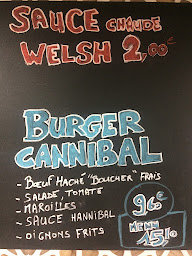 SAUCE CHAUDE
WELSH 2,00€
BURGER
CANNIBAL
- BŒUF HACHÉ "BOUCHER" FRAIS
- SALADE, TOMATE
- MAROILLES
- SAUCE HANNIBAL
- OIGNONS FRITS
9€60
MENU